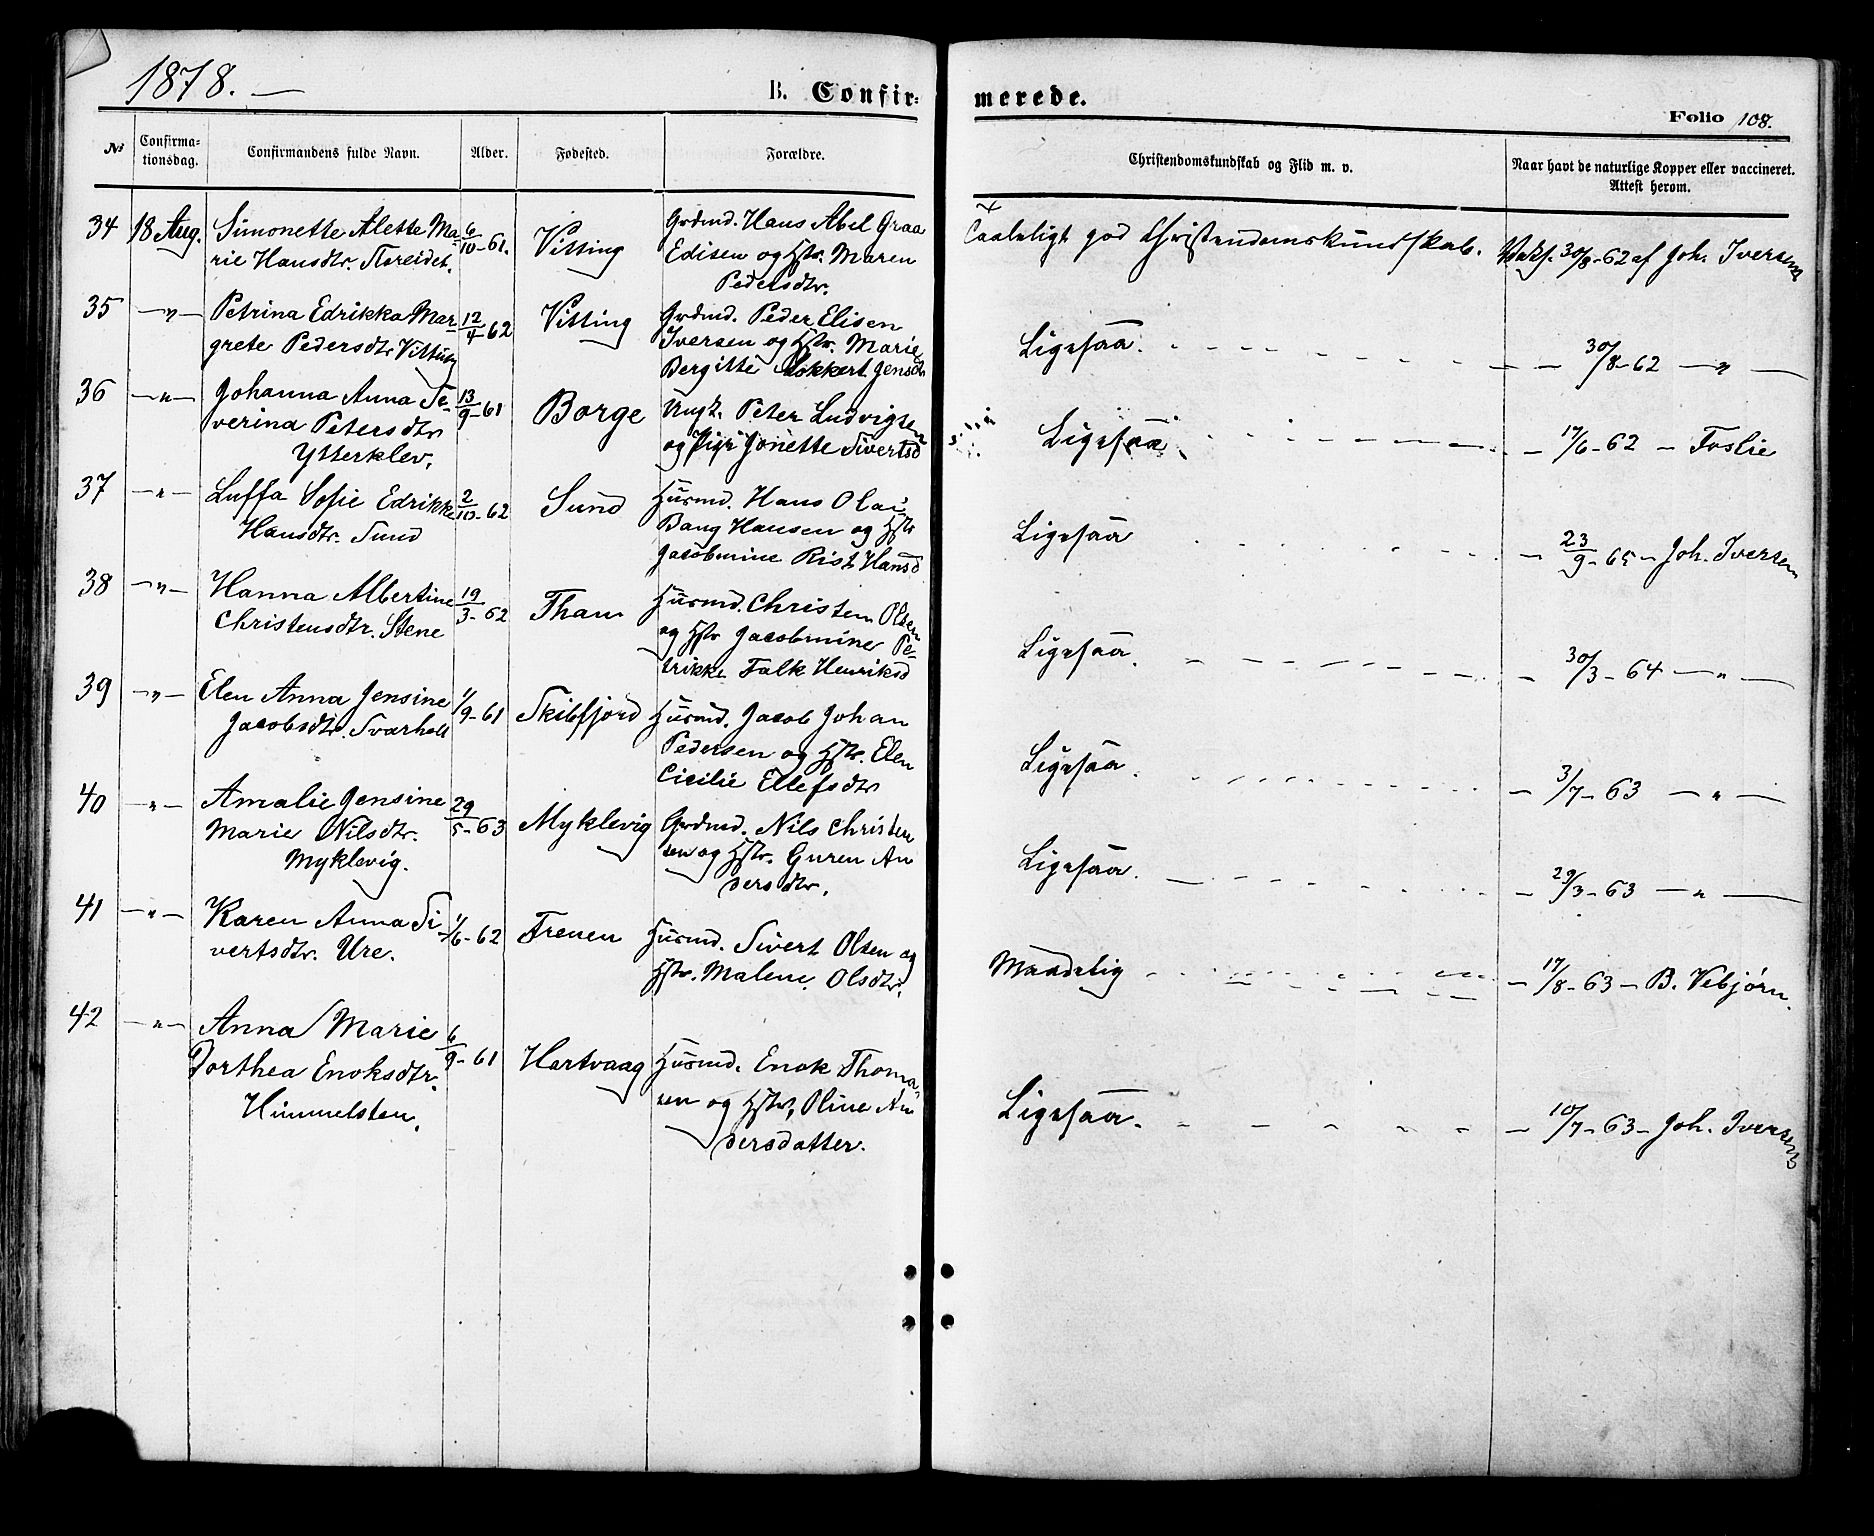 1878. —
B. Confir-
merede.
Folio 108.
No
Confirma-
tionsdag.
Confirmandens fulde Navn.
Alder.
Fødested.
Forældre.
Christendomskundskab og Flid m. v.
Naar havt de naturlige Kopper eller vaccineret.
Attest herom.
34 18 Aug. Simonette Alette Ma- 6/10-61. Vitting Grdmd. Hans Abel Graa Taaleligt god Christendomskundskab. Vakc. 30/8-62 af Joh. Iversen
rie Hansdtr. Edisen og Hstr. Maren
Pedersdtr.
35 —"— Petrina Edrikka Mar- 12/4 62 Vitting Grdmd. Peder Elisen Ligesaa. — 30/8-62 —"—
grete Pedersdtr Vitting Iversen og Hstr. Marie
Bergitte Lokkert Jensdtr
36 —"— Johanna Anna Se- 13/9-61 Borge Ungk. Peter Ludvigsen Ligesaa — 17/6-62 — Foslie
verina Petersdtr og Pige Jonette Sivertsd
Ytterklev.
37 —"— Luffa Sofie Edrikke 2/10-62 Sund Husmd. Hans Olai Ligesaa — 23/9-65 — Joh. Iversen
Hansdtr. Sund Bang Hansen og Hstr
Jacobmine Rist Hansd
38 —"— Hanna Albertine 19/3-62 Tham Husmd. Christen Olsen Ligesaa. — 30/3-64 —"—
Christensdtr. Stene og Hstr Jacobmine Pe-
trikke Falk Henriksd
39 —"— Elen Anna Jensine 1/9-61 Skibfjord Husmd. Jacob Johan Ligesaa. — 3/7-63 —"—
Jacobsdtr. Svarholt Pedersen og Hstr. Elen
Cicilie Ellefsdtr
40 —"— Amalie Jensine 29/5-63 Myklevig Grdmd. Nils Christen Ligesaa. — 29/3-63 —"—
Marie Nilsdtr. sen og Hstr. Guren An
Myklevig. dersdtr.
41 —"— Karen Anna Si- 1/6-62 Trenen Husmd. Sivert Olsen og Maadelig — 17/8-63 — B. Vebjørn.
vertsdtr. Ure. Hstr. Malene Olsdtr.
42 —"— Anna Marie 6/9-61 Hartvaag Husmd. Enok Thoma- Ligesaa. — 10/7-63 — Joh. Iversen
Dorthea Enoksdtr. sen og Hstr, Oline An
Himmelsten. dersdatter.